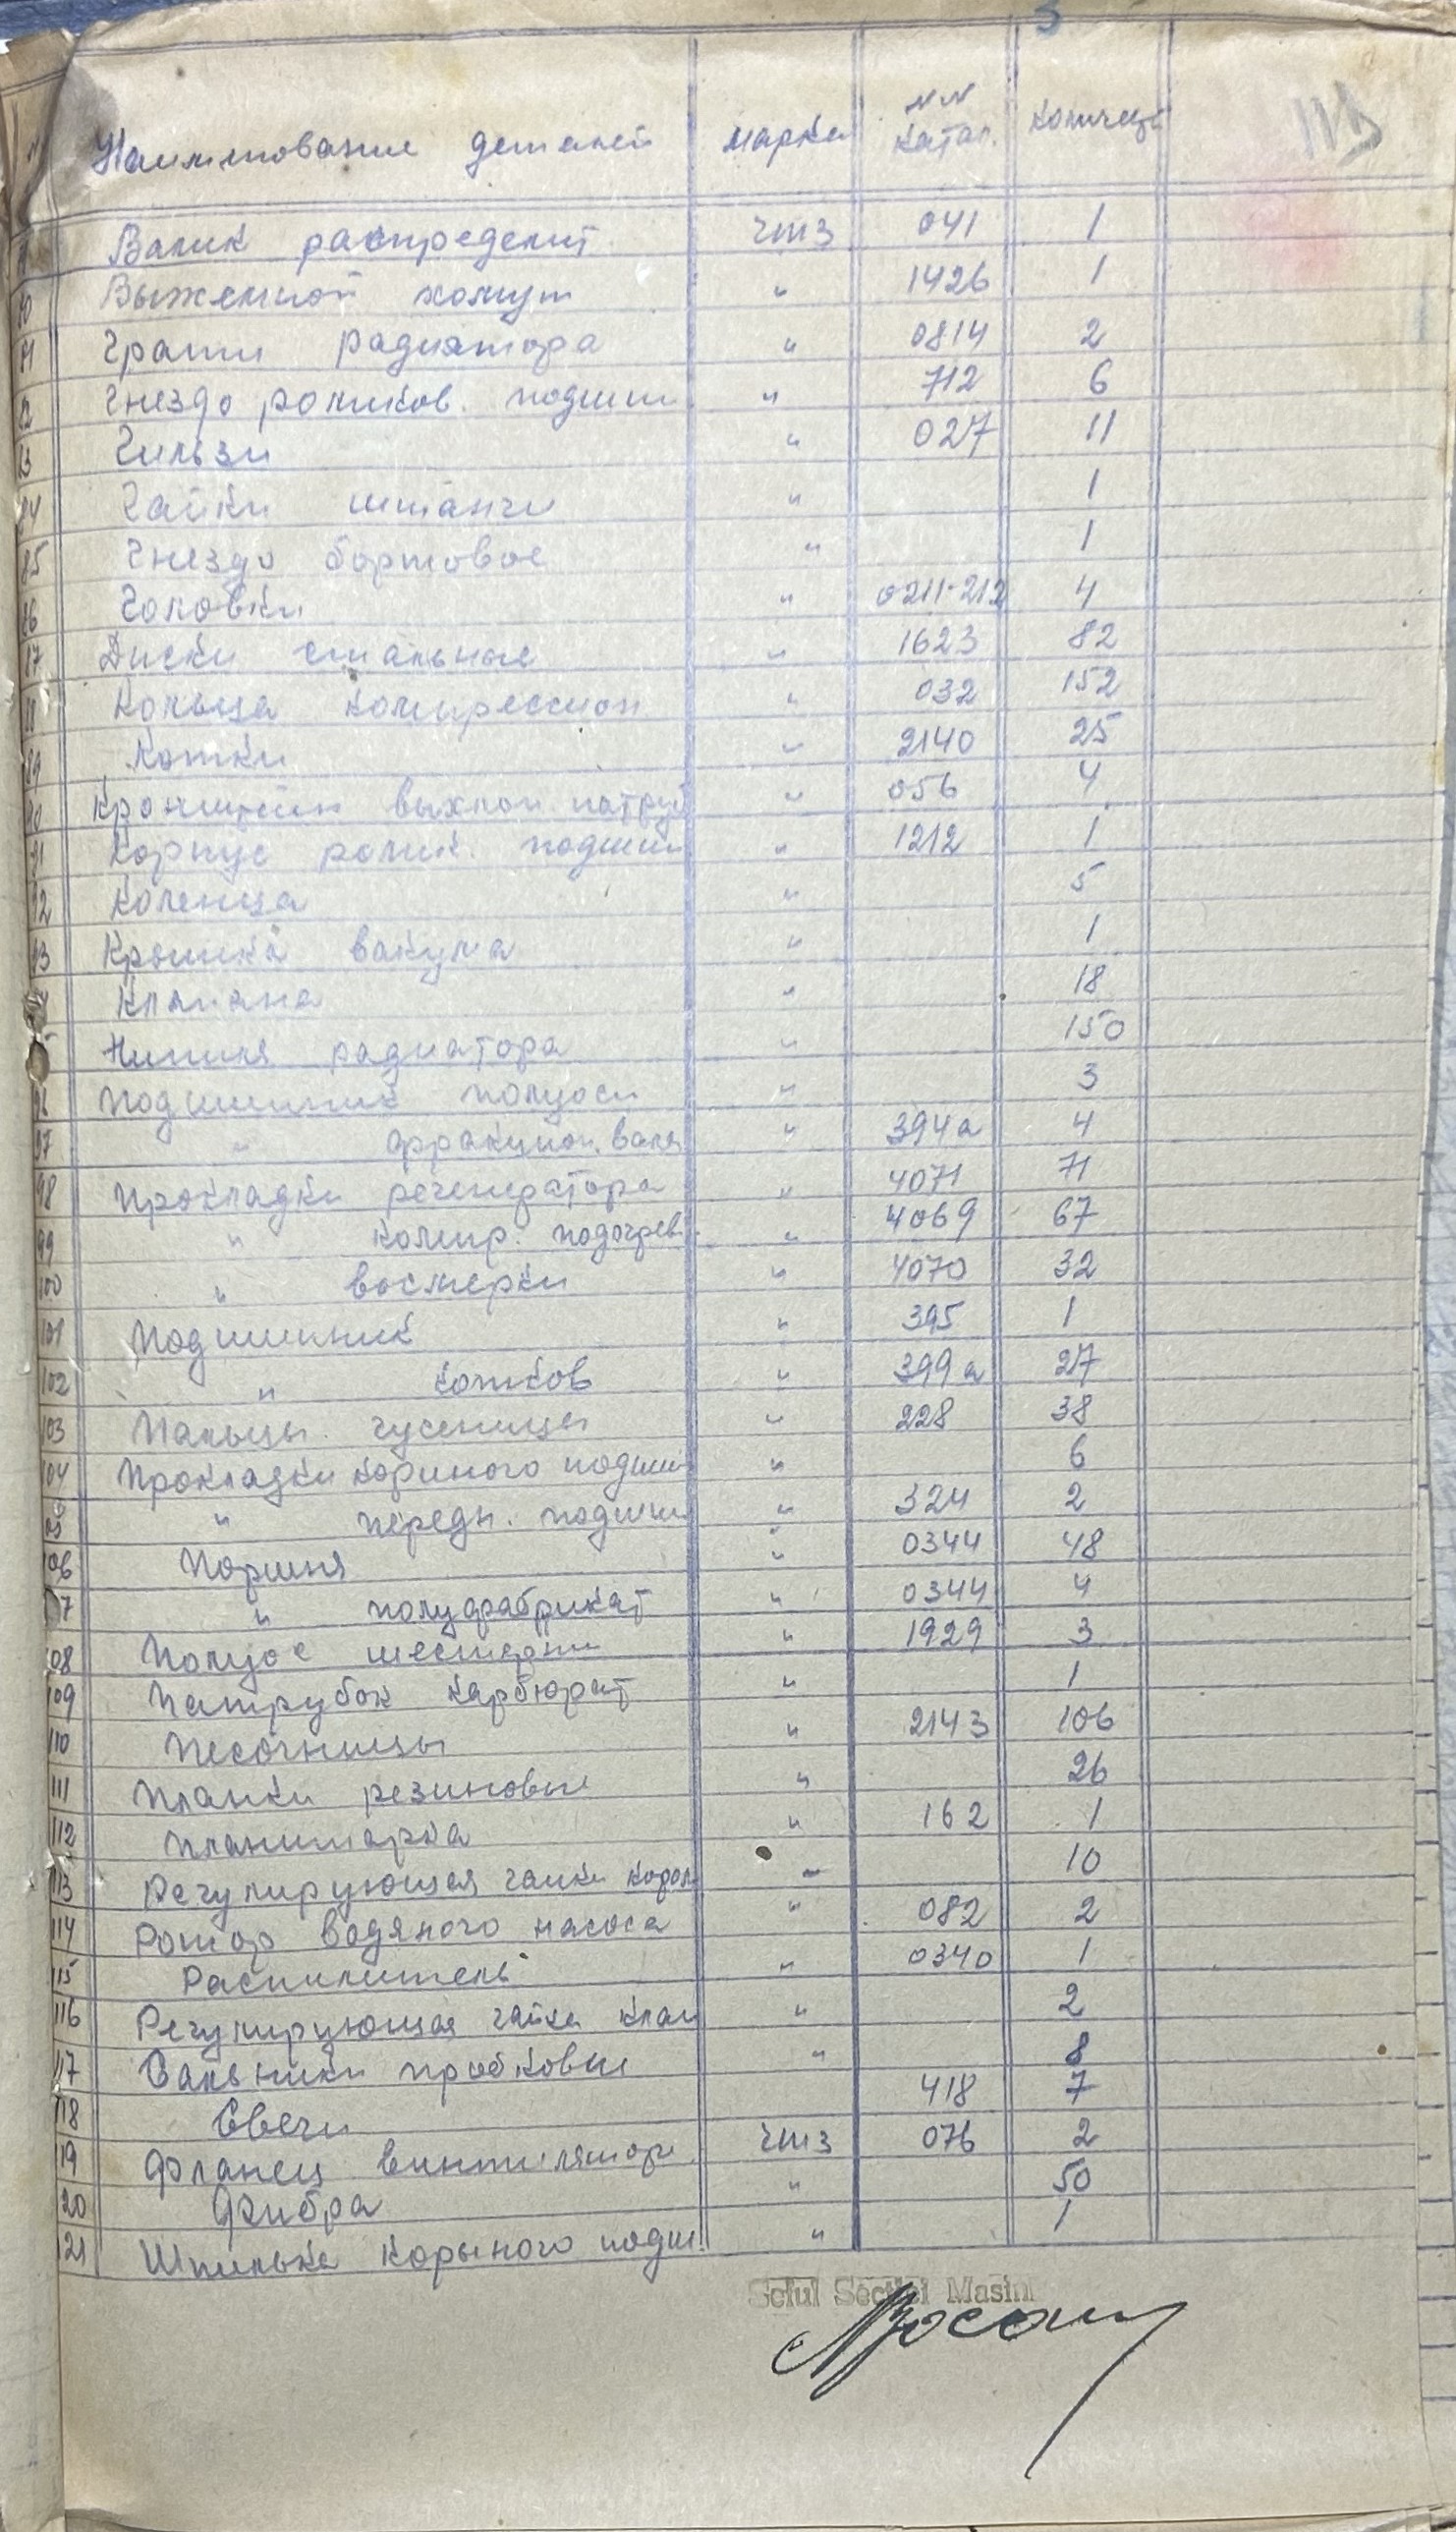 3
Наименование деталей марка №№ катал. количеств
Валик распределит. ЧТЗ 041 1
80 Выжемной хомут " 1426 1
81 Грати радиятора " 0814 2
82 Гнездо роликов. подшип " 712 6
83 Гильзи " 027 11
84 Гайки штанги " 1
85 Гнездо бортовое " 1
86 Головки " 0211-212 4
87 Диски стальные " 1623 82
88 Кольца компрессион " 032 152
89 Катки " 2140 25
90 Кронштейн выхлоп. патруб " 056 4
91 Корпус ролик. подшип " 1212 1
92 Коленца " 5
93 Крышка вакума " 1
Клапана " 18
Нипиля радиатора " 150
96 Подшипник полуоси " 3
97 " фракцион. вала " 394а 4
98 Прокладки регенератора " 4071 71
99 " колир. подогрев. " 4069 67
100 " восмерки " 4070 32
101 Подшипник " 395 1
102 " катков " 399а 27
103 Пальцы гусеницы " 228 38
104 Прокладки кориного подшип " 6
105 " передн. подшип " 324 2
106 Поршня " 0344 48
107 " полуфабрикат " 0344 4
108 Полуос шестерни " 1929 3
109 Патрубок карбюрат " 1
110 Песочницы " 2143 106
111 Планки резиновые " 26
112 Планшарка " 162 1
113 Регулирующая гайки корол " 10
114 Ротор водяного насоса " 082 2
115 Распилитель " 0340 1
116 Регулирующая гайка клап " 2
117 Сальники пробковые " 8
118 Свечи 418 7
119 Фланец винтилятор ЧТЗ 076 2
120 Фибра " 50
121 Шпилька корыного подш. " 1
Seful Secției Masini